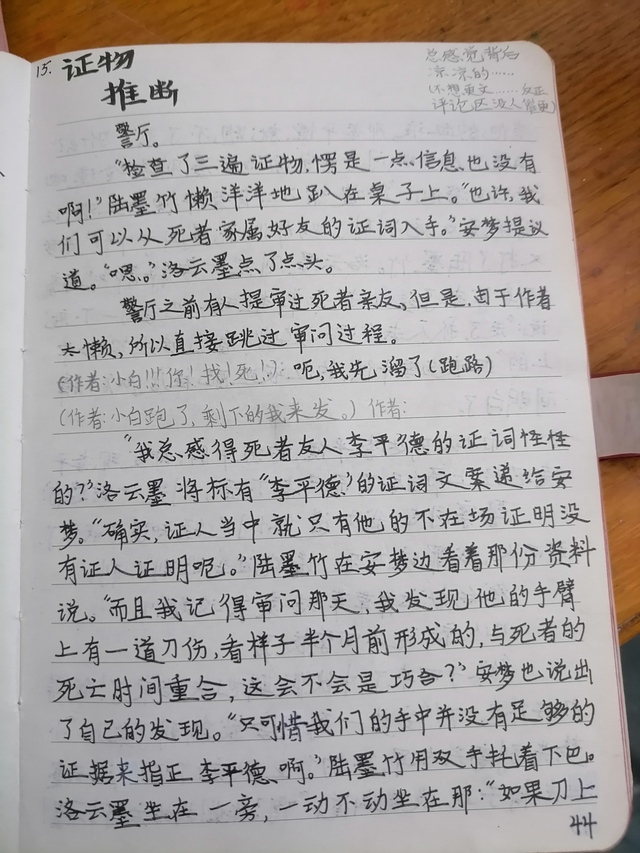 15. 证物
推断
总感觉背后
凉凉的……
(不想更文……反正
评论区没人催更)
警厅。
“检查了三遍证物,愣是一点信息也没有
啊!”陆墨竹懒洋洋地趴在桌子上。“也许,我
们可以从死者家属好友的证词入手。”安梦提议
道。“嗯。”洛云墨点了点头。
警厅之前有人提审过死者亲友,但是,由于作者
太懒,所以直接跳过审问过程。
(作者:小白!!!你!找!死!) 呃,我先溜了(跑路)
(作者:小白跑了,剩下的我来发。) 作者:
“我总感得死者友人李平德的证词怪怪
的?”洛云墨将标有“李平德”的证词文案递给安
梦。“确实,证人当中就只有他的不在场证明没
有证人证明呢。”陆墨竹在安梦边看着那份资料
说。“而且我记得审问那天,我发现他的手臂
上有一道刀伤,看样子半个月前形成的,与死者的
死亡时间重合,这会不会是巧合?”安梦也说出
了自己的发现。“只可惜我们的手中并没有足够的
证据来指正李平德啊。”陆墨竹用双手托着下巴。
洛云墨坐在一旁,一动不动坐在那:“如果刀上
44